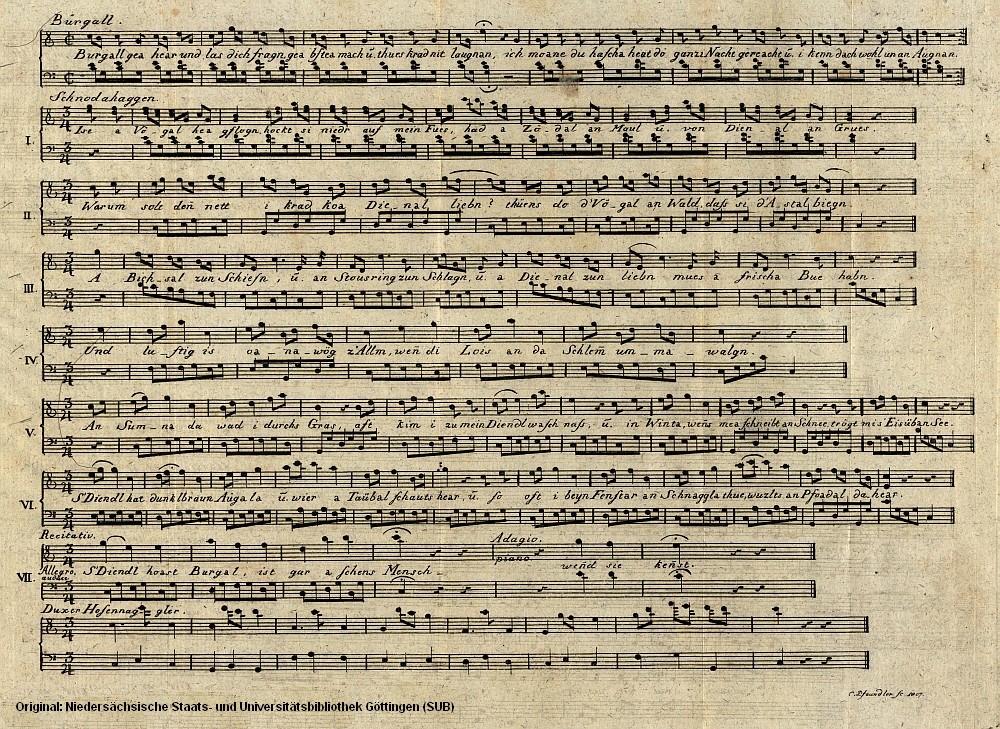 Burgall.
Burgall gea hear und las dich fragn, gea bstea mach ū. thues krad nit laugnan, ich moane du hascha heat dö ganzi Nacht gereacht ū. i kenn dach wohl un an Augnan.
Schnodahaggen.
I. Ise a Vö_gal hea gflogn, hockt si niedr auf mein Fues, had a Zö_dal an Moul ū. von Dien_al an Grues.
II. Warum solt den̄ nett i krad koa Die_nal liebn? thūens do d'Vö_gal an Wald, dass si d'A_stal biegn.
III. A Bich_sal zun Schiesn, ū. an Stousring zun Schlagn, ū. a Die_nal zun liebn mues a frischa Bue habn.
IV. Und lu_stig is oa_na_wög z'Allm, wen̄ di Lois an da Schlem̄ um_ma_walgn.
V. An Sum_na da wad i durchs Gras, aft kim i zu mein Diendl wasch nass, ū. in Winta, wens mea schneibt an Schnee, trögt mi s'Eis üban See.
VI. S'Diendl hat dunklbraun Augala ū. wier a Taübal schauts hear, ū. so oft i beyn Fenstar an Schnaggla thue, wuzlts an Pfoadal da hear.
Recitativ.
Adagio.
piano
VII. Allegro, S'Diendl hoast Burgal, ist gar a schens Mensch_ wend sie ken̄st.
Duxer Hosennag=gler.
C. Pfaundler sc. 1807.
Original: Niedersächsische Staats- und Universitätsbibliothek Göttingen (SUB)